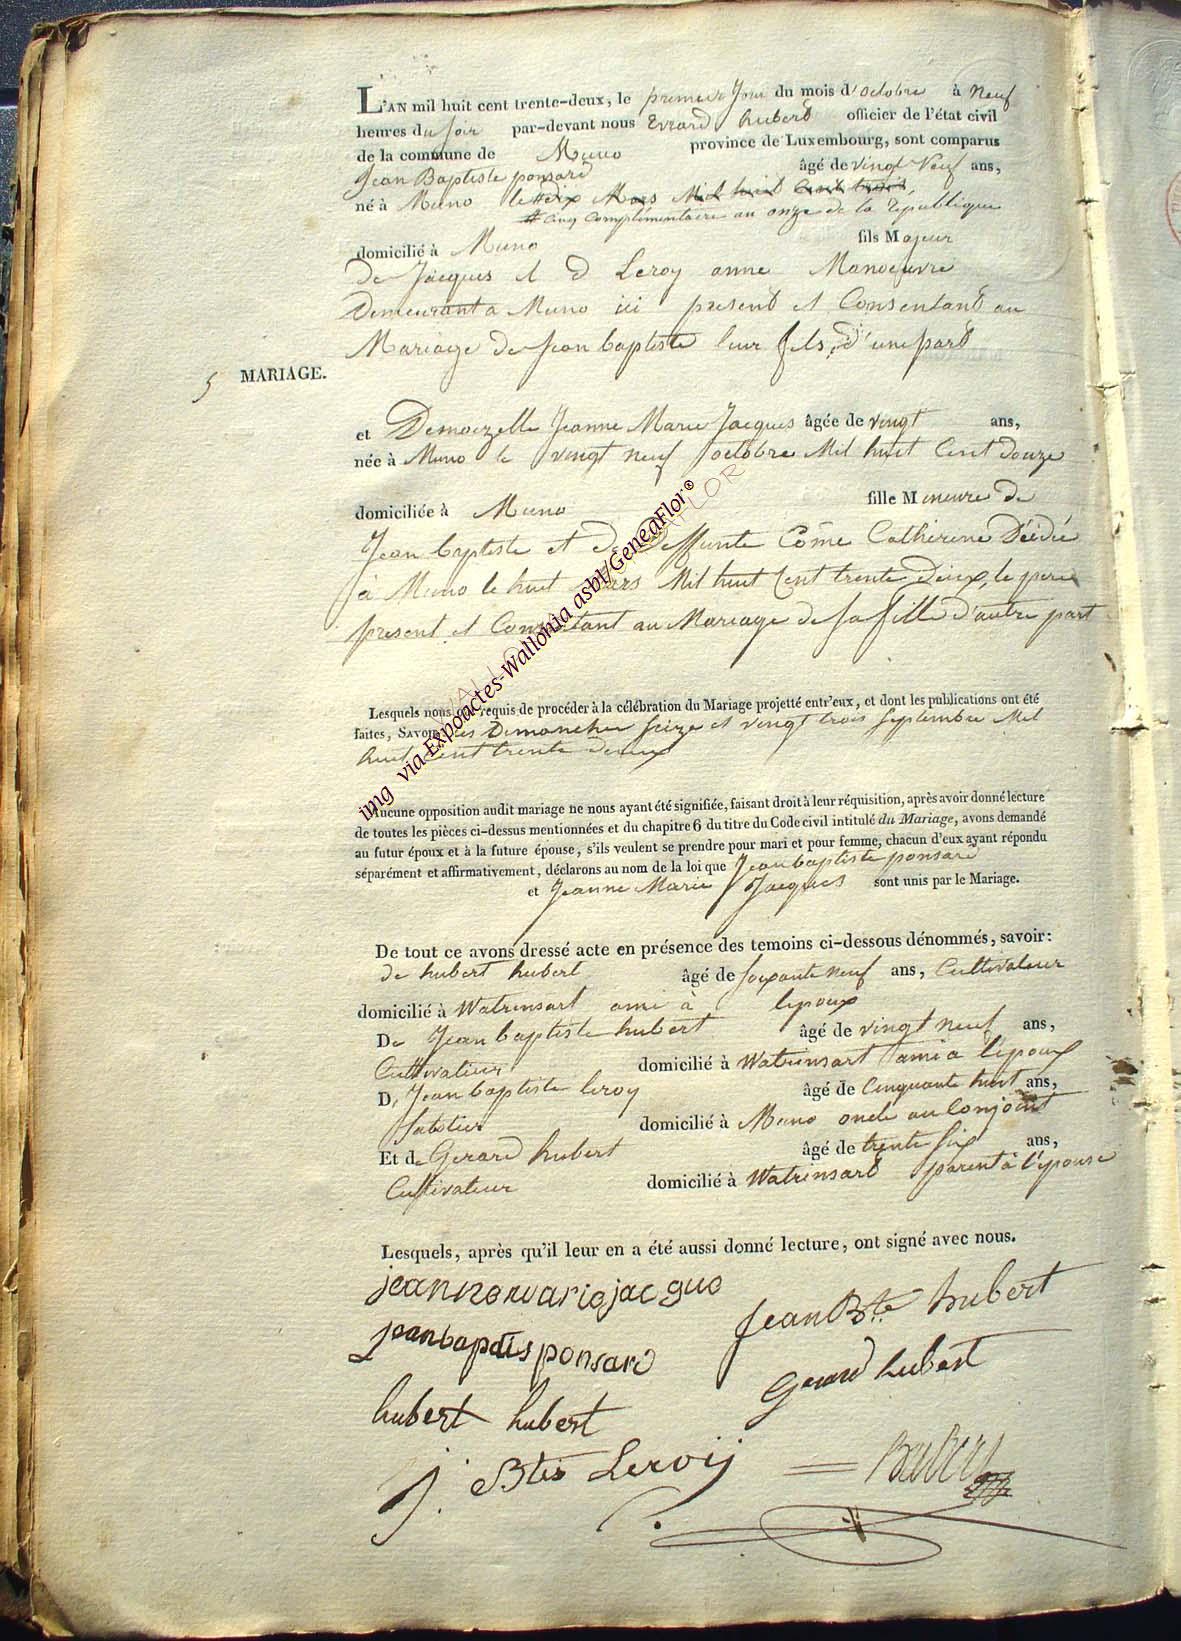 L'AN mil huit cent trente-deux, le premier Jour du mois d'octobre à Neuf
heures du soir par-devant nous Evrard hubert officier de l'état civil
de la commune de Muno province de Luxembourg, sont comparus
Jean Baptiste ponsard âgé de vingt Neuf ans,
né à Muno le dix Mars Mil huit Cent trois,
# cinq complémentaire au onze de la republique
domicilié à Muno fils Majeur
de Jacques et d Leroy anne Manoeuvre
Demeurant a Muno ici present et Consentant au
Mariage de Jean baptiste leur fils, d'une part
5 MARIAGE.
et Demoizelle Jeanne Marie Jacques âgée de vingt ans,
née à Muno le vingt neuf octobre Mil huit Cent douze
domiciliée à Muno fille Mineure de
Jean baptiste et de Deffunte Côme Catherine Décédée
à Muno le huit Mars Mil huit Cent trente deux, le pere
present et Consentant au Mariage de sa fille d'autre part
Lesquels nous ont requis de procéder à la célébration du Mariage projetté entr'eux, et dont les publications ont été
faites, SAVOIR: les Dimanches seize et vingt trois septembre Mil
huit Cent trente deux
Aucune opposition audit mariage ne nous ayant été signifiée, faisant droit à leur réquisition, après avoir donné lecture
de toutes les pièces ci-dessus mentionnées et du chapitre 6 du titre du Code civil intitulé du Mariage, avons demandé
au futur époux et à la future épouse, s'ils veulent se prendre pour mari et pour femme, chacun d'eux ayant répondu
séparément et affirmativement, déclarons au nom de la loi que Jean baptiste ponsard
et Jeanne Marie Jacques sont unis par le Mariage.
De tout ce avons dressé acte en présence des temoins ci-dessous dénommés, savoir:
de hubert hubert âgé de soixante neuf ans, Cultivateur
domicilié à Watrinsart ami à l'epoux
De Jean baptiste hubert âgé de vingt neuf ans,
Cultivateur domicilié à Watrinsart ami a l'époux
De Jean baptiste leroy âgé de Cinquante huit ans,
Sabotier domicilié à Muno oncle au Conjoint
Et de Gerard hubert âgé de trente six ans,
Cultivateur domicilié à Watrinsart parent à l'épouse
Lesquels, après qu'il leur en a été aussi donné lecture, ont signé avec nous.
jeanne marie jacque
Jean Bte hubert
jean baptis ponsard
Gerard hubert
hubert hubert
j. Btis Leroij
img via Expoactes-Wallonia asbl/GeneaFlor ©